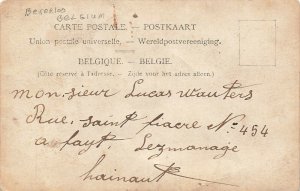 Beverloo
BELGIUM
CARTE POSTALE. — POSTKAART
Union postale universelle. — Wereldpostvereeniging.
BELGIQUE. — BELGIE.
(Côté réservé à l'adresse. — Zijde voor het adres alleen.)
monsieur Lucas Wauters
Rue. saint fiacre N° 454
a fayt. Lez manage
hainaut